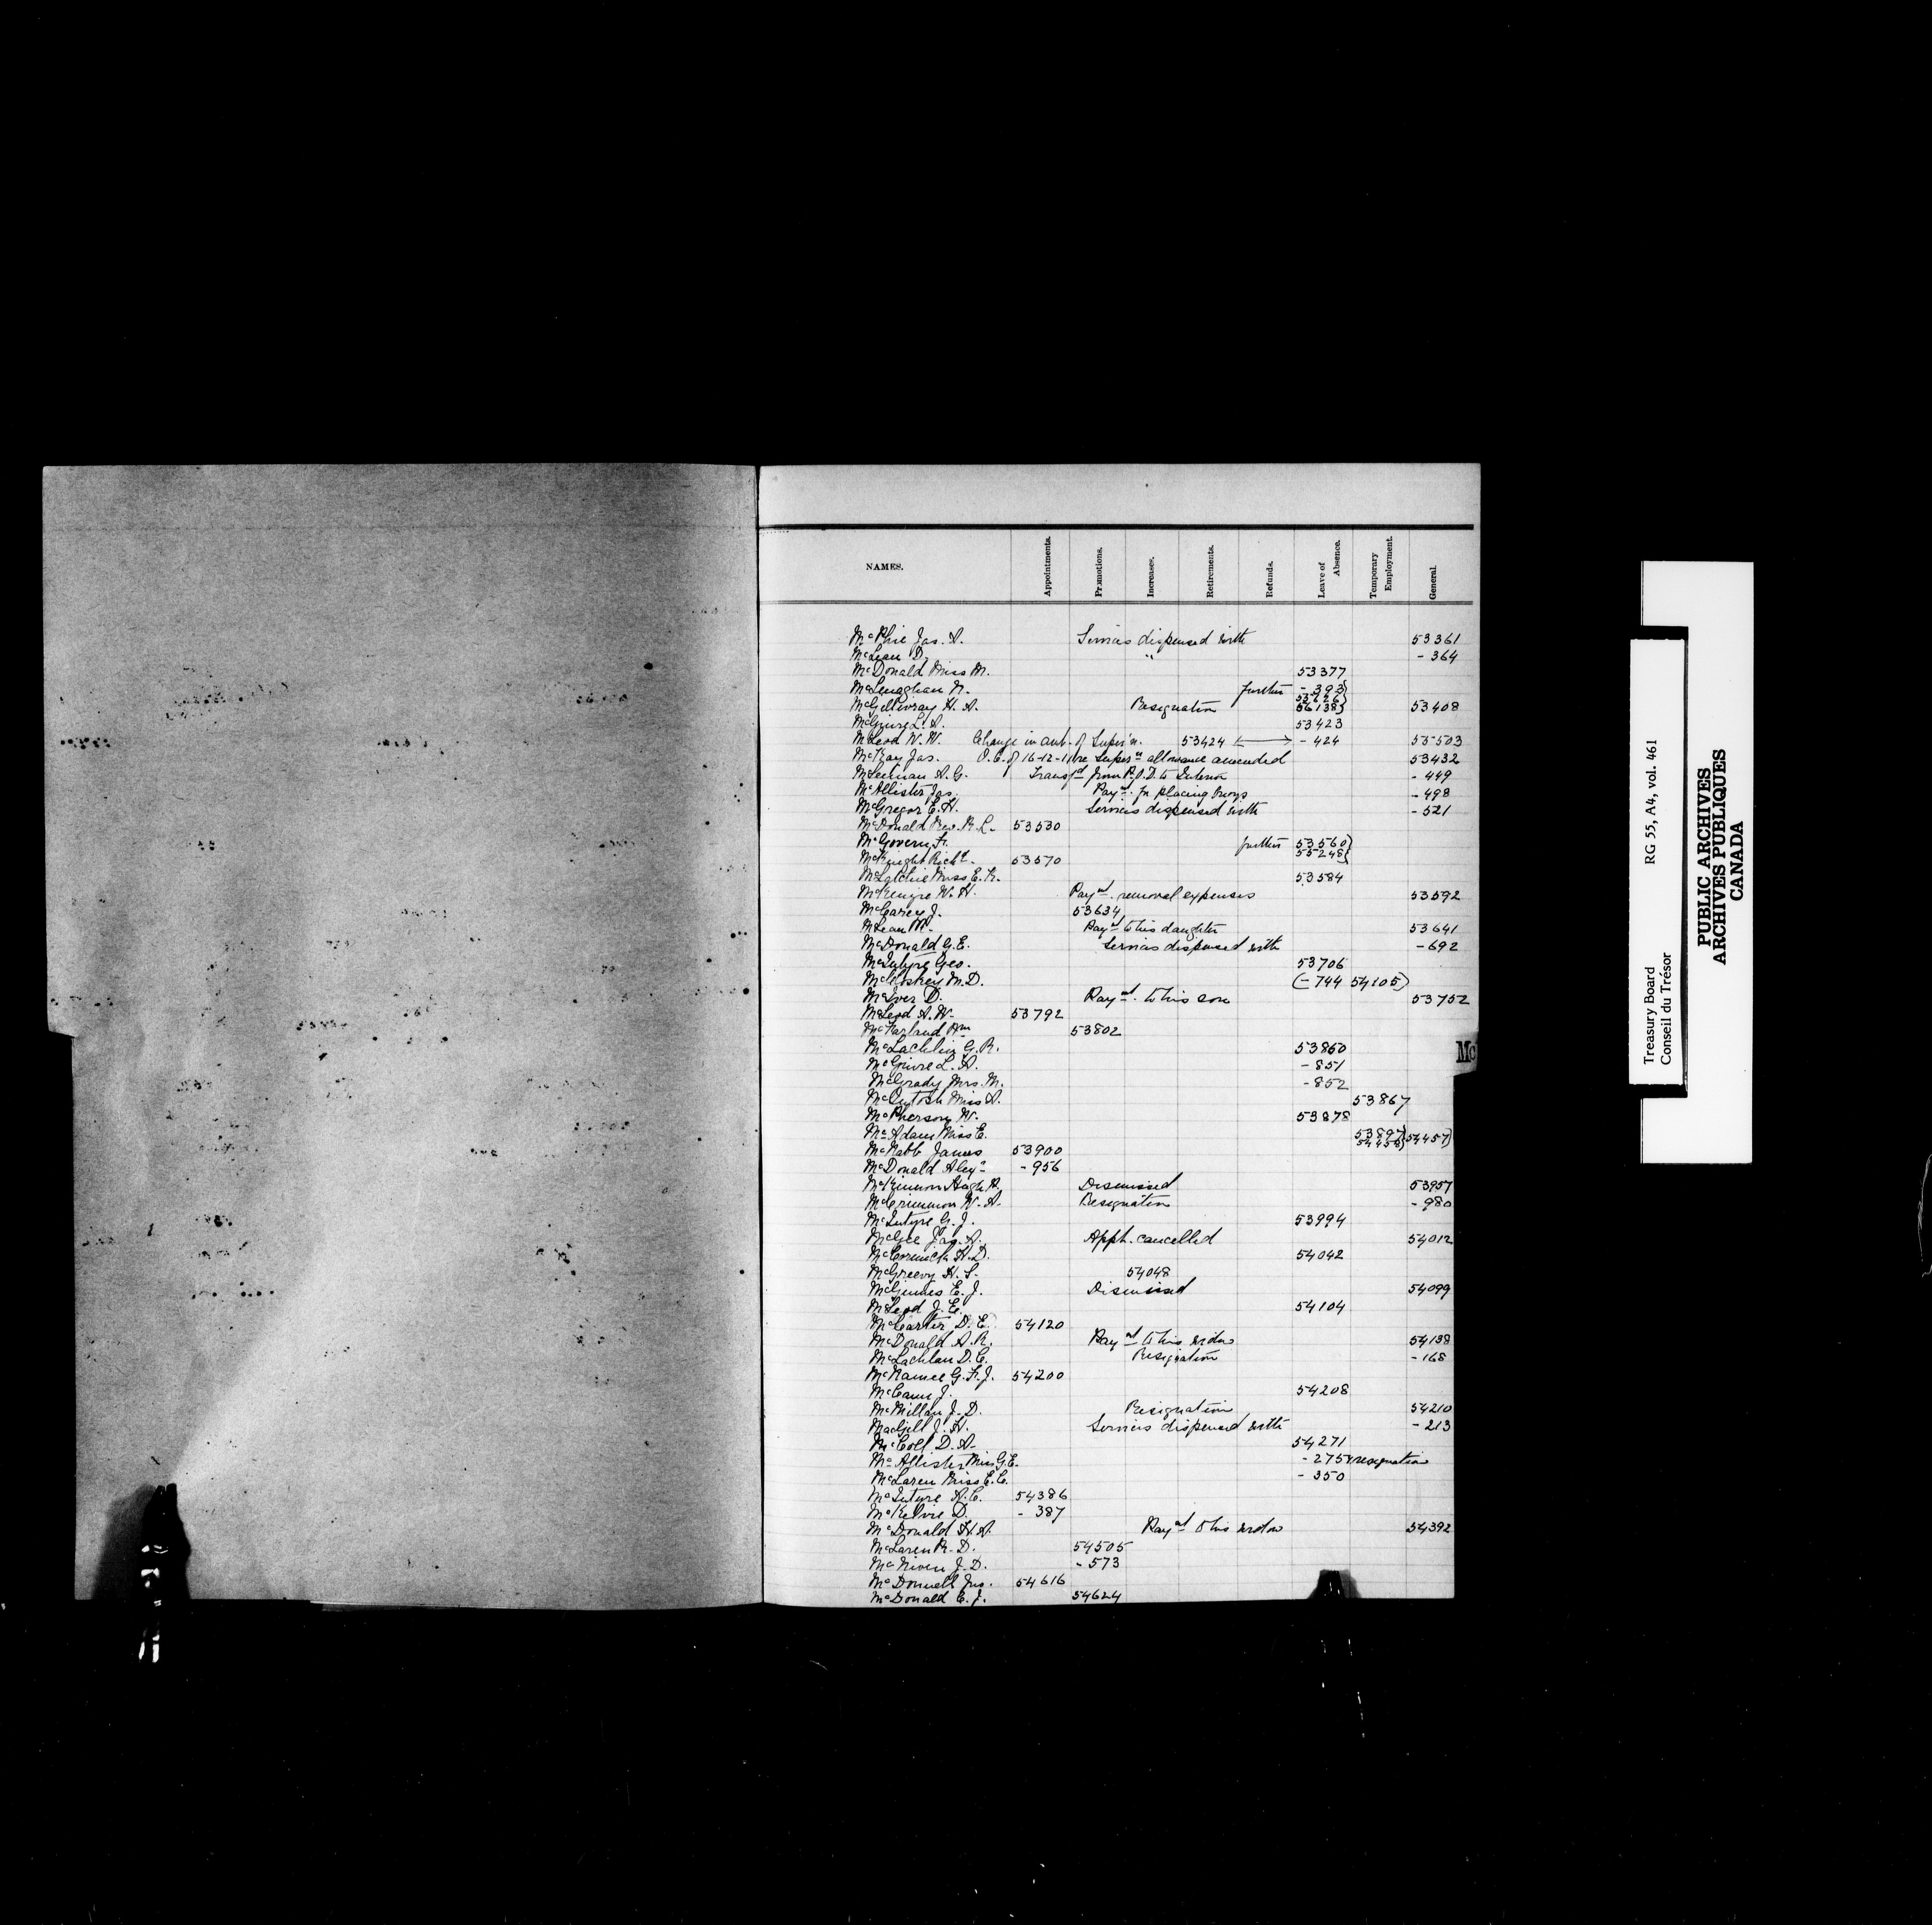 NAMES. Appointments. Promotions. Increases. Retirements. Refunds. Leave of Absence. Temporary Employment. General.
McPhie Jas. A. Services dispensed with 53361
McLean D. " - 364
McDonald Miss M. 53377
McLenaghan N. further - 393}
McGillivray H. A. Resignation 56138} 53408
McGuire L. A. 53423
McLeod W. W. Change in amt. of Super'n. 53424 ←→ - 424 55503
McKay Jas. O.C. of 16-12-11 re Super'n allowance amended 53432
McLennan A. G. Transf'd from P.O.D. to Interior - 449
McAllister Jas. Paym't for placing buoys - 498
McGregor E. H. Services dispensed with - 521
McDonald Rev. R. L. 53530
McGovern Fr. further 53560}
55248}
McKnight Rich'd. 53570
McLatchie Miss E. K. 53584
McKenzie W. H. Paym't removal expenses 53592
McCarey J. 53634
McLean M. Paym't to his daughter 53641
McDonald G. E. Services dispensed with - 692
McIntyre Geo. 53706
McCloskey M. D. (- 744 54105)
McIver D. Paym't to his son 53752
McLeod A. W. 53792
McFarland Wm 53802
McLachlin G. R. 53850
McGuire L. A. - 851
McGrady Mrs. M. - 852
McIntosh Miss A. 53867
McPherson W. 53878
McAdam Miss E. 53897} 54457)
54458}
McNabb James 53900
McDonald Alex'r - 956
McKinnon Hugh A. Dismissed 53957
McCrimmon W. A. Resignation - 980
McIntyre G. J. 53994
McGee Jas. A. Appt. cancelled 54012
McCormick H. D. 54042
McGreevy H. S. 54048
McGinnes E. J. Dismissed 54099
McLeod J. E. 54104
McCarter D. E. 54120
McDonald A. R. Paym't to his widow 54138
McLachlan D. C. Resignation - 168
McNamee G. F. J. 54200
McCann J. 54208
McMillan J. D. Resignation 54210
MacGill J. H. Services dispensed with - 213
McColl D. A. 54271
McAllister Miss G. E. - 275 & resignation
McLaren Miss E. C. - 350
McIntyre A. C. 54386
McKelvie D. - 387
McDonald H. A. Paym't to his widow 54392
McLaren R. D. 54505
McNiven J. D. - 573
McDonnell Jno. 54616
McDonald C. J. 54624
Mc
Treasury Board RG 55, A4, vol. 461
Conseil du Trésor
PUBLIC ARCHIVES
ARCHIVES PUBLIQUES
CANADA